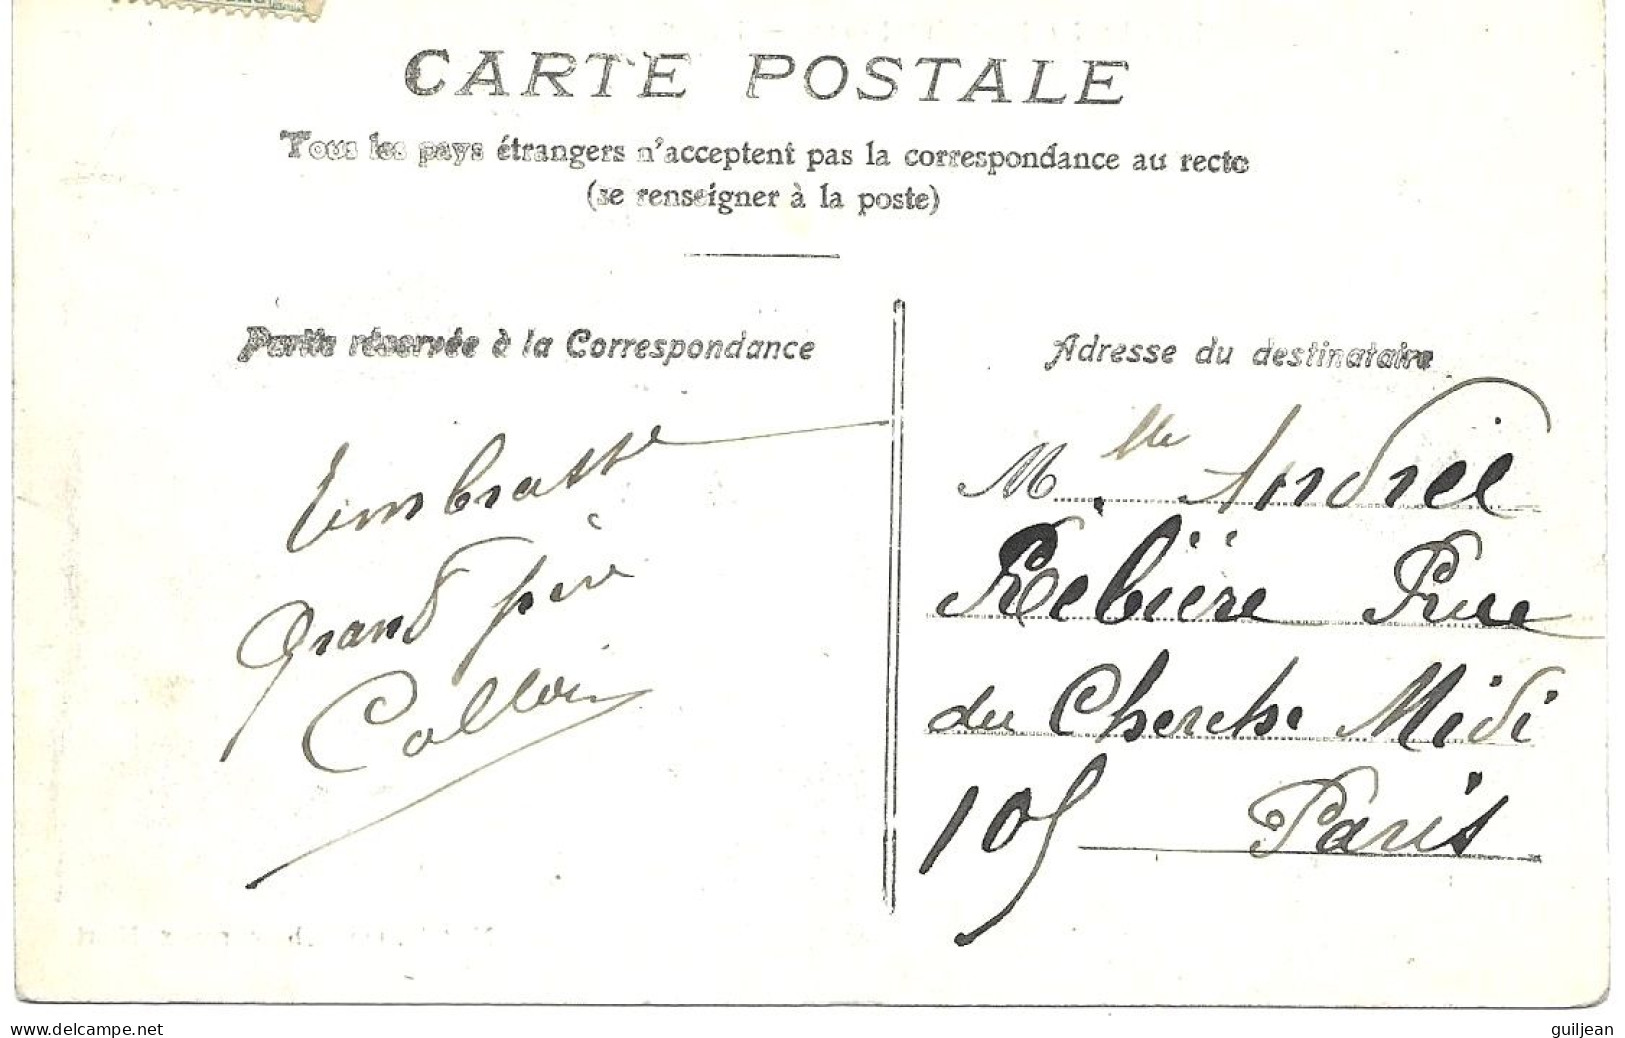 CARTE POSTALE
Tous les pays étrangers n'acceptent pas la correspondance au recto
(se renseigner à la poste)
Partie réservée à la Correspondance
embrasse
Grand père
Adresse du destinataire
Mlle Andrée
Rebière Rue
du Cherche Midi
105 Paris
www.delcampe.net
guiljean